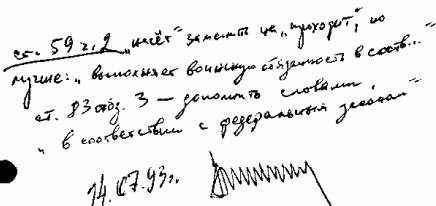 ст. 59 ч. 2 „несёт“ заменить на „проходит“, но
лучше: „выполняет воинскую обязанность в соотв...“
ст. 83 абз. 3 — дополнить словами
„в соответствии с федеральным законом“
14.07.93г.